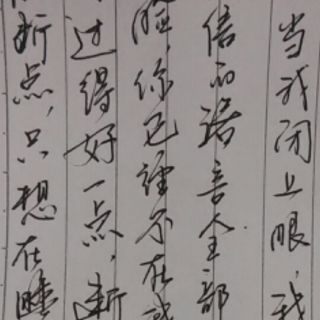 当我闭上眼，我
信的诺言全部
你已经不在我
过得好一点，渐
折点，只想在睡